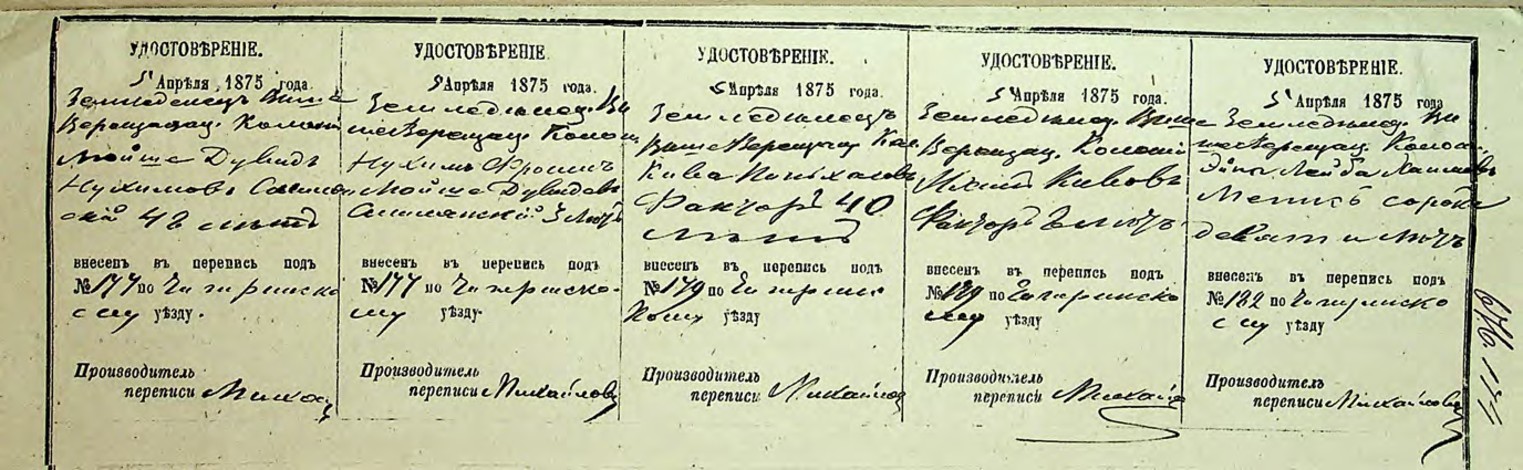 УДОСТОВѢРЕНІЕ.
5 Апрѣля 1875 года.
Земледелецъ Више
Верещацъ. Колоніи
Мойше Дувидъ
Нухимовъ
42 летъ
внесенъ въ перепись подъ
№ 177 по Чигиринско
му уѣзду.
Производитель
переписи
УДОСТОВѢРЕНІЕ
5 Апрѣля 1875 года.
Земледѣлецъ Ви
шеверещац. Колон
Нухимъ Фроимъ
Мойше Дувидовъ
3 лѣтъ
внесенъ въ перепись подъ
№ 177 по Чигиринско-
му уѣзду.
Производитель
переписи Михайловъ
УДОСТОВѢРЕНІЕ.
5 Апрѣля 1875 года.
Земледѣлецъ
Више Верещац Кол
Кива Пинхасовъ
Факторъ 40
лѣтъ
внесенъ въ перепись подъ
№ 179 по Чигиринс
кому уѣзду
Производитель
переписи Михайлов
УДОСТОВѢРЕНІЕ.
5 Апрѣля 1875 года.
Земледѣлец. Више
Верещац. Колоніи
Кивовъ
Факторъ лѣтъ
внесенъ въ перепись подъ
№ 179 по Чигиринско
му уѣзду
Производитель
переписи Михайл
УДОСТОВѢРЕНІЕ.
5 Апрѣля 1875 года
Земледѣлец. Ви
шеверещац. Колон.
Лейба Хаимовъ
сорока
лѣтъ
внесенъ въ перепись подъ
№ 182 по Чигиринско
му уѣзду
Производитель
переписи Михайловъ